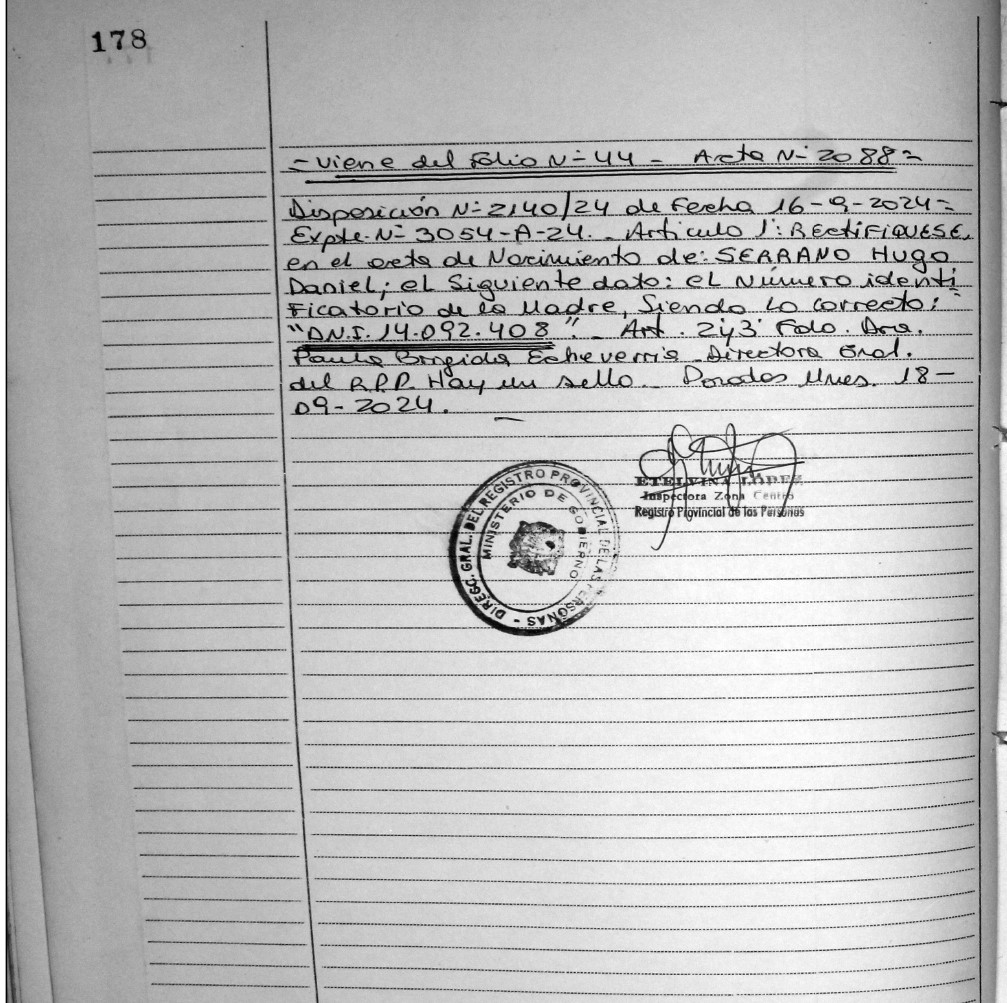 178
- Viene del Folio N- 44 - Acta N- 2088=
Disposición N- 2140/24 de Fecha 16-9-2024=
Expte. N- 3054-A-24. Articulo 1': RECTIFIQUESE,
en el acta de Nacimiento de: SERRANO Hugo
Daniel; el Siguiente dato: el Número identi
ficatorio de la Madre, Siendo Lo correcto:
"D.N.I. 14.092.408". Art. 2y3' Fdo. Dra.
Paula Brigida Echeverria Directora Gral.
del R.P.P. Hay un sello. Posadas Mnes. 18-
09-2024.
ETELVINA LOPEZ
Inspectora Zona Centro
Registro Provincial de las Personas
DIRECC. GRAL. DEL REGISTRO PROVINCIAL DE LAS PERSONAS -
MINISTERIO DE GOBIERNO